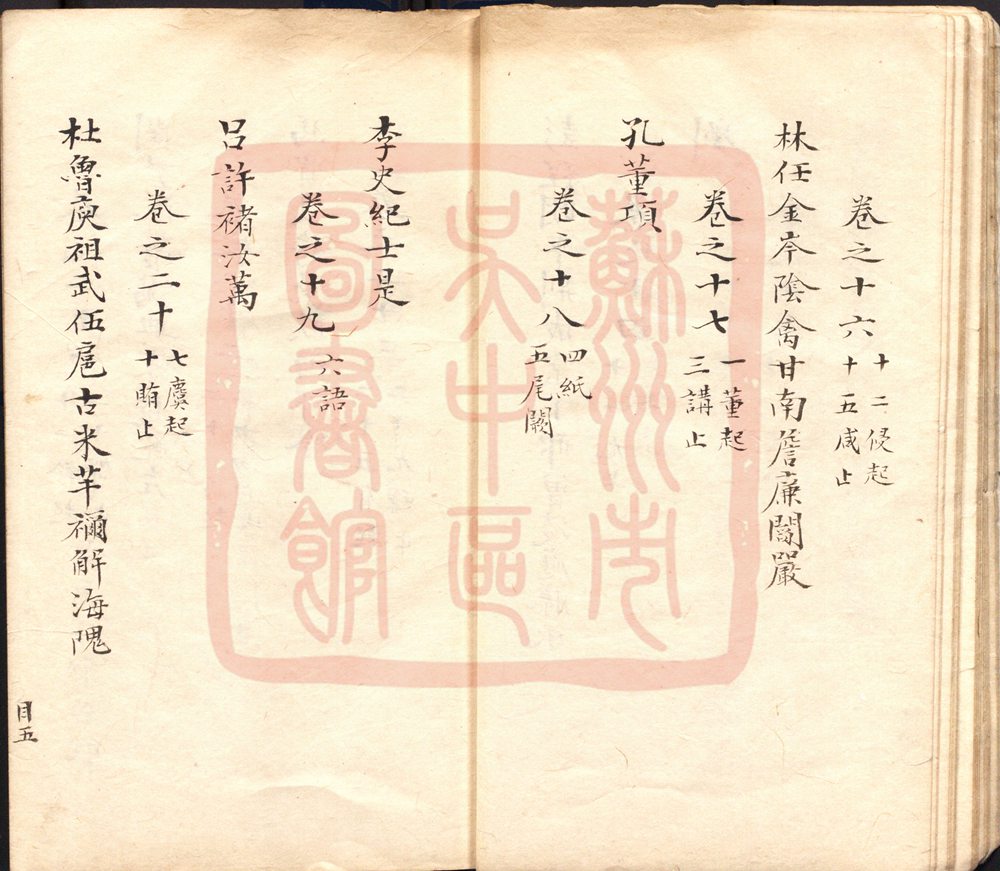 卷之十六 十二侵起
十五咸止
林任金岑陰禽甘南詹廉闞嚴
卷之十七 一董起
三講止
孔董項
卷之十八 四紙
五尾闕
李史紀士是
卷之十九 六語
呂許褚汝萬
卷之二十 七麌起
十賄止
杜魯庾祖武伍扈古米芊禰解海隗
目五
蘇州市
吴中區
圖書館